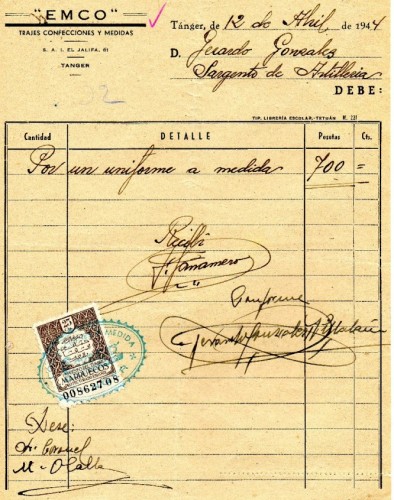 "EMCO"
TRAJES CONFECCIONES Y MEDIDAS
S. A. I. EL JALIFA, 61
TANGER
2
Tánger, de 12 de Abril de 1944
D. Gerardo Gonzalez
Sargento de Artilleria
DEBE:
TIP. LIBRERÍA ESCOLAR.-TETUÁN M. 231
Cantidad DETALLE Pesetas Cts.
Por un uniforme a medida 700 =
Recibí
Conforme
MEDIDA
MARRUECOS
00862708
Dese: